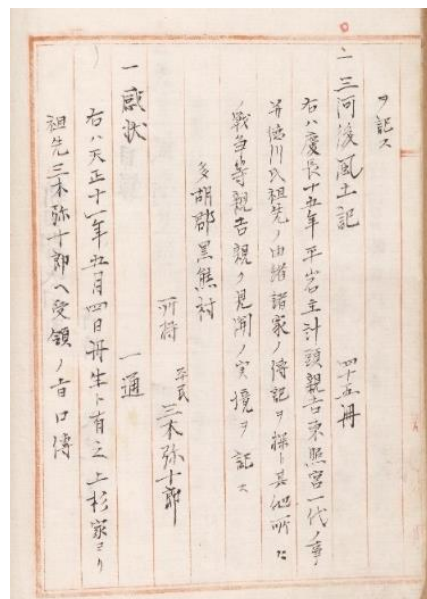 ヲ記ス
一三河後風土記　四十五冊
右ハ慶長十五年平岩主計頭親吉東照宮一代ノ事
并徳川氏祖先ノ由緒諸家ノ傳記ヲ採ト其他所々
ノ戦争等親吉親ク見聞ノ実境ヲ記ス
多胡郡黒熊村
平民
所持　三木弥十郎
一感状　一通
右ハ天正十一年五月四日冊生ト有之上杉家ヨリ
祖先三木弥十郎ヘ受領ノ旨口傳